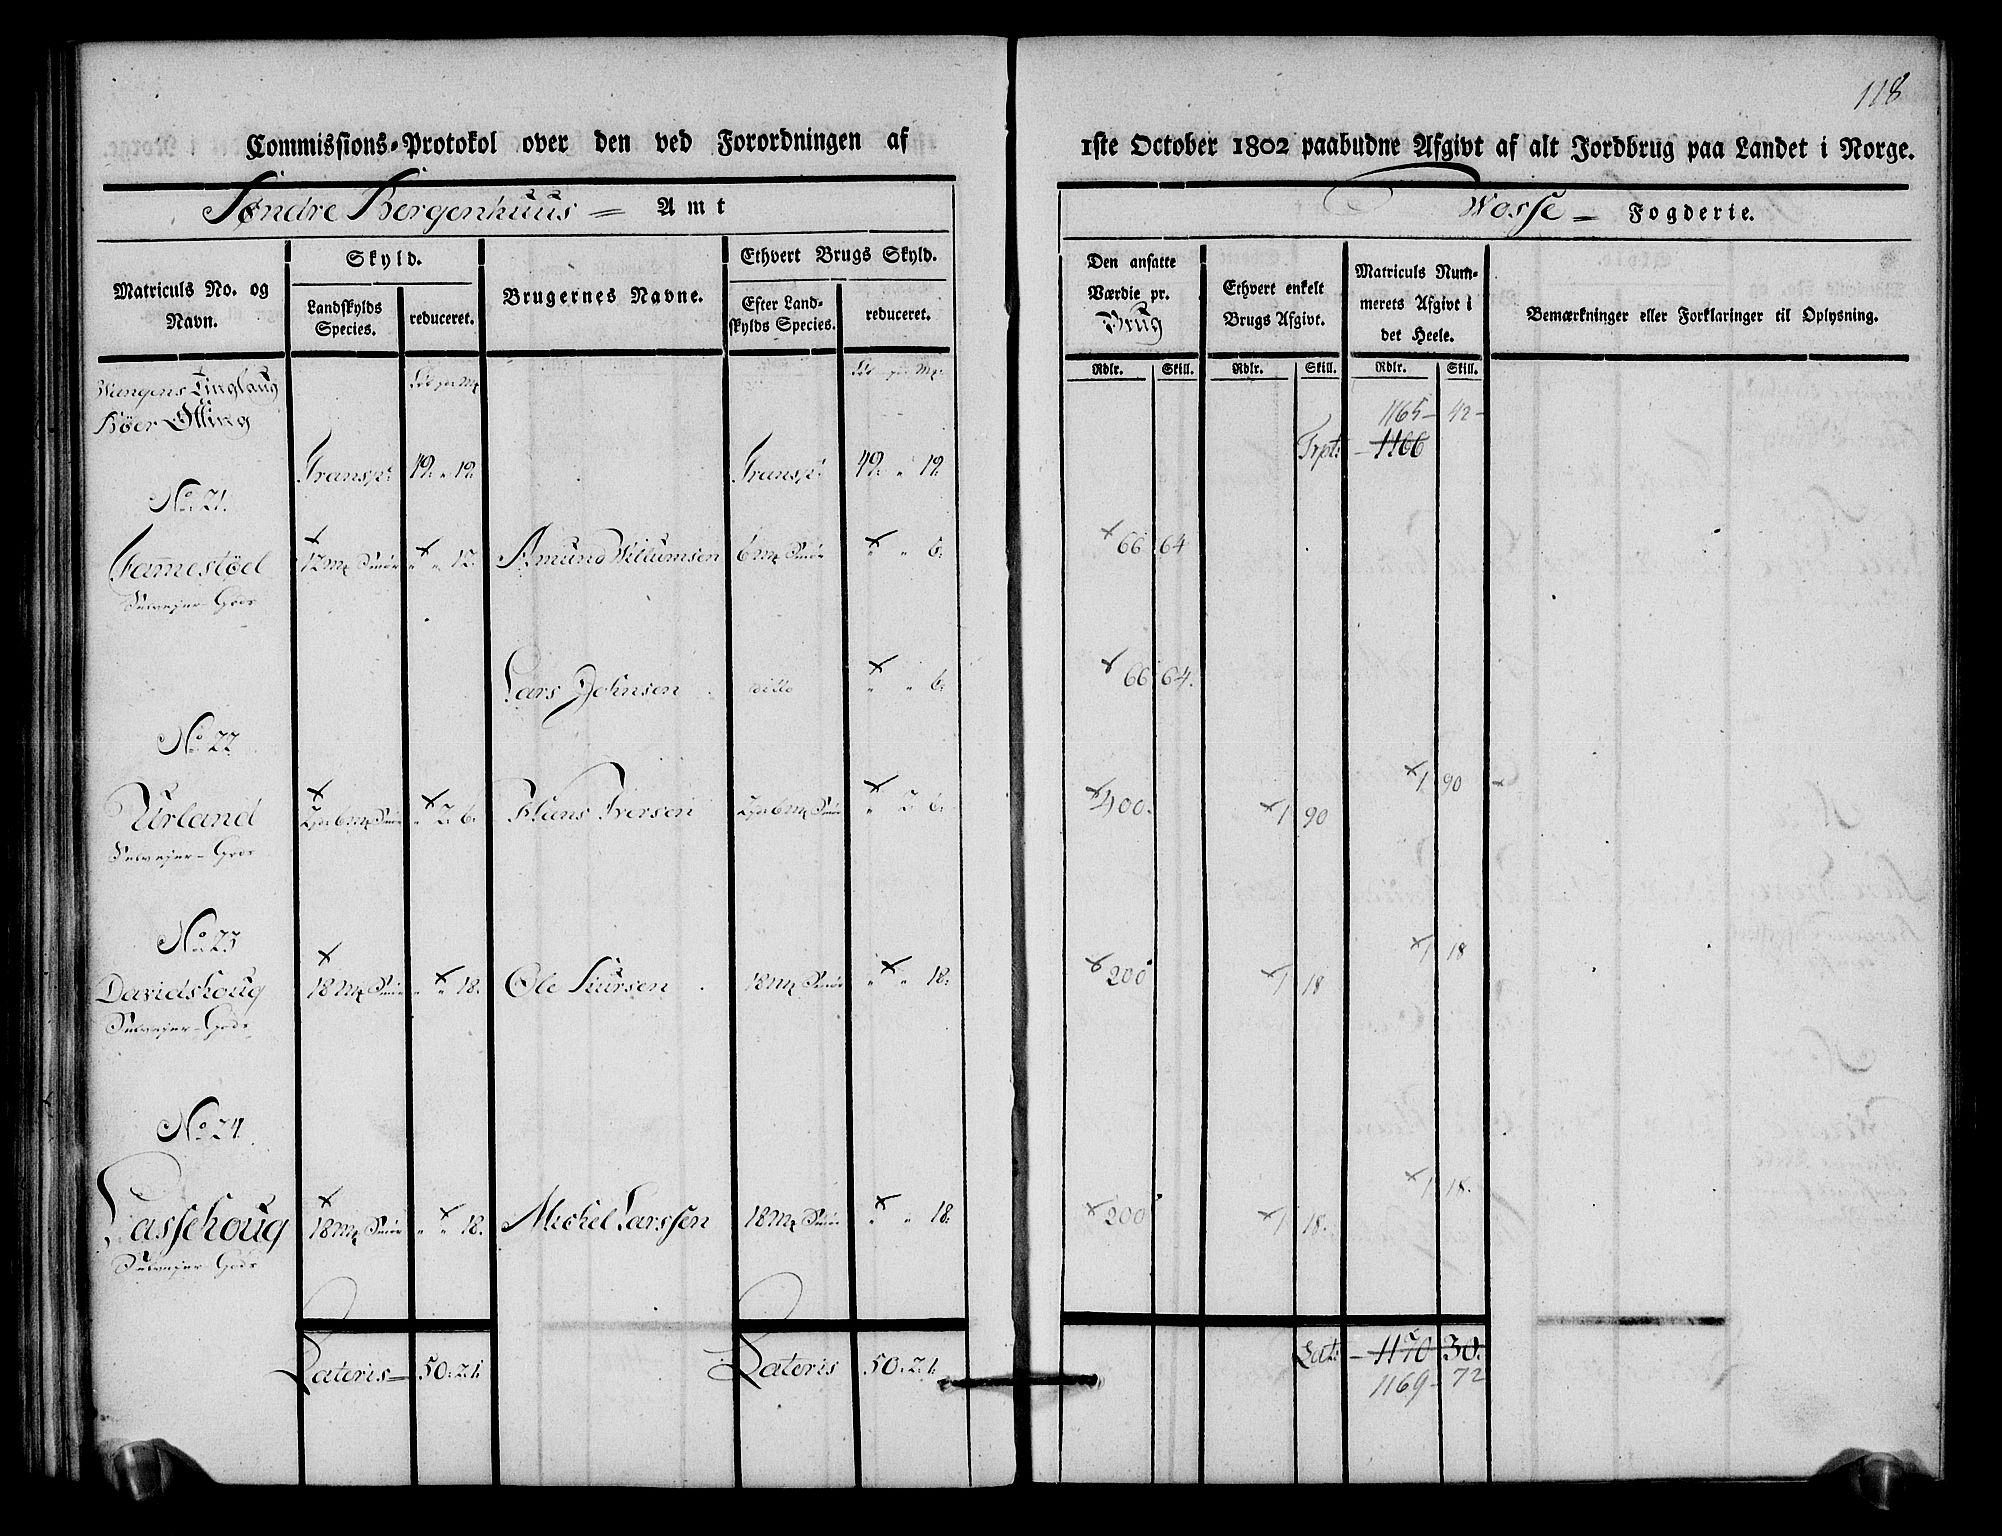 118
Commissions-Protokol over den ved Forordningen af 1ste October 1802 paabudne Afgivt af alt Jordbrug paa Landet i Norge.
Søndre Bergenhuus = Amt
Wosse - Fogderie.
Matriculs No. og Navn.
Skyld.
Landskylds Species.
reduceret.
Brugernes Navne.
Ethvert Brugs Skyld.
Efter Landskylds Species.
reduceret.
Den ansatte Værdie pr. Brug
Ethvert enkelt Brugs Afgivt.
Matriculs Nummerets Afgivt i det Heele.
Bemærkninger eller Forklaringer til Oplysning.
Rdlr. Skill. Rdlr. Skill. Rdlr. Skill.
Wangens Tinglaug
Bøer Otting
1165 - 42 -
Transp: 49. " 19. Transp: 49. " 19. Trpt: - 1166
No. 21.
Famestøel 12 Mk Smør " " 12. Amund Willumsen 6 Mk Smør " " 6. 66 64
Selvejer-Gods
Lars Johnsen ditto " " 6. 66 64.
No. 22
Urland 2 pd 6 Mk Smør " 2. 6. Hans Iversen 2 pd 6 Mk Smør " 2. 6. 400. 1 90 1 90
Selvejer-Gods
No. 23
Davidshoug 18 Mk Smør " " 18. Ole Siursen 18 Mk Smør " " 18. 200 1 18 1 18
Selvejer-Gods
No. 24.
Lassehoug 18 Mk Smør " " 18. Michel Larssen 18 Mk Smør " " 18. 200 1 18. 1 18.
Selvejer-Gods
Lateris 50. 2. 1. Lateris 50. 2. 1. Lat: - 1170 30.
1169 - 72